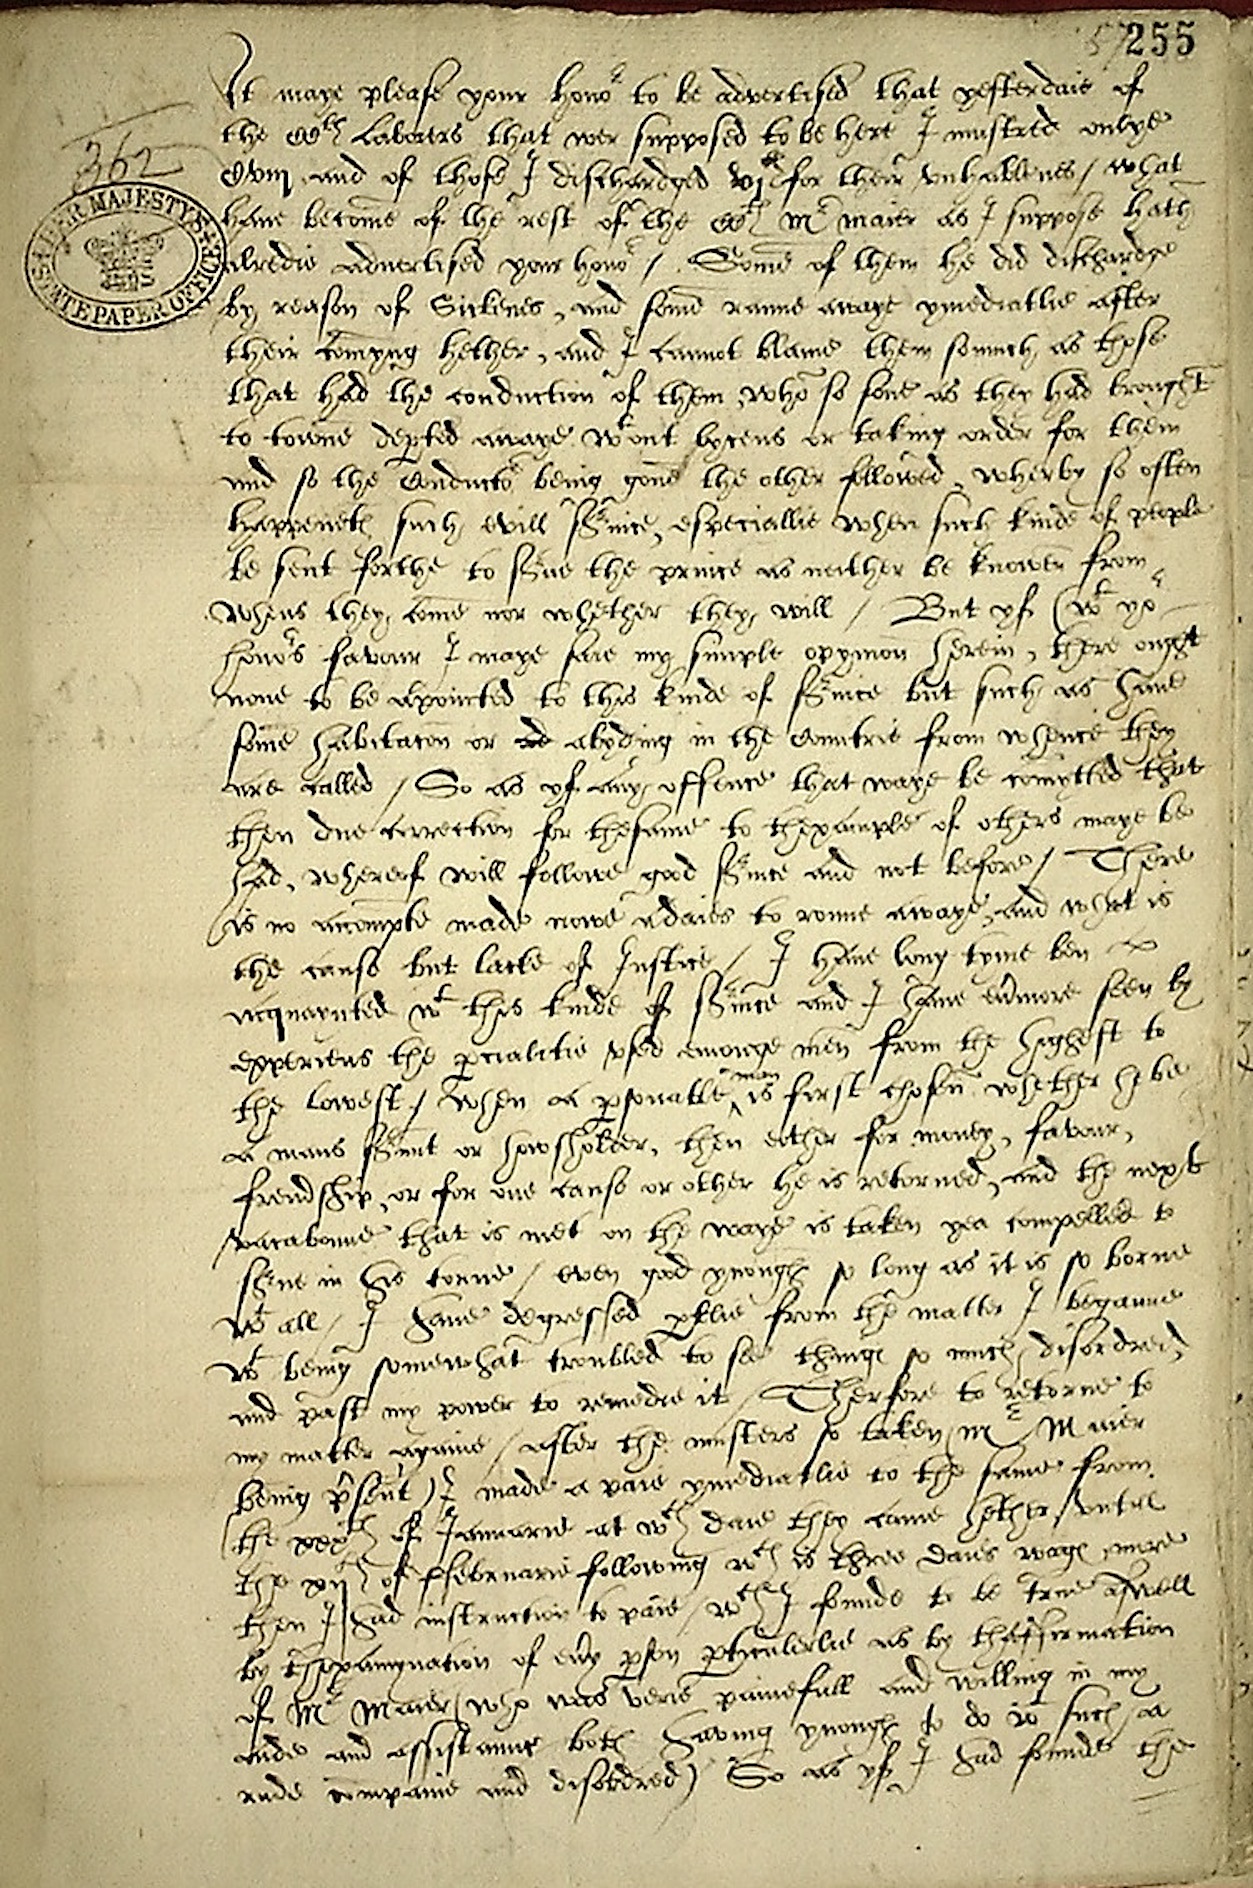 57 255
It maye please your hono^r to be advertised that yesterdaie of
the CC^th Laborers that wer supposed to be here I mustred onlye
Cviij and of those I dischardged vj for their vnhablenes / what
362
HER MAJESTY'S STATE PAPER OFFICE
haue become of the rest of the CC^th M^r maier as I suppose hath
alredie aduertised your hono^r /. Some of them he did dischardge
by reason of Sicknes, and some ranne awaye ymediatlie after
their comyng hether, and I cannot blame them somuch as those
that had the conduction of them, who so sone as they had brought
to towne depted awaye w^tout lycens or taking order for them
and so the Conducto^r being gone the other followed, wherby so often
happeneth such evill s^ruice, especiallie when such kinde of people
be sent forthe to s^rue the prince as neither be knowen from
whens they come nor whether they will / But yf (w^t yo^r
hono^rs favour I maye saie my simple opynion herein, there ought
none to be apointed to this kinde of s^ruice but such as haue
some habitacon or abyding in the Countrie from whence they
are called / So as yf any offence that waye be comytted that
then due correction for thesame to thexample of others maye be
had, wherof will followe good s^ruice and not before / There
is no accompte made nowe adaies to ronne awaye, and what is
the cause but lacke of Justice / I haue long tyme ben
acquaynted w^t this kinde of s^ruice and I haue eu^rmore seen by
experiens the pcialitie vsed amonge men from the highest to
the lowest / When a psonable ^man is first chosen whether he be
a mans s^ruant or howsholder, then either for money, favour,
frendship, or for one cause or other he is retorned, and the next
vacabonne that is met on the waye is taken yea compelled to
s^rue in his rome / even good ynough so long as it is so borne
w^t all / I haue degressed ptlie from the matter I beganne
w^t being somewhat troubled to see things so much disordred,
and past my power to remedie it / Therfore to retorne to
my matter agayne / after the musters so taken (M^r Maier
being p^rsent) I made a paie ymediatlie to the same from
the xxx^th of Januarie at w^ch daie they came hether vntill
the xij^th of ffebruarie following w^ch is three daies wages more
then I had instruction to paie / w^ch I founde to be true aswell
by thexamynation of eu^ry pson pticulerlie as by thaffirmation
of M^r Maier (who was verie painefull and willing in my
aide and assistance both having ynough to do w^t such a
rude companie and disordred) So as yf I had founde the